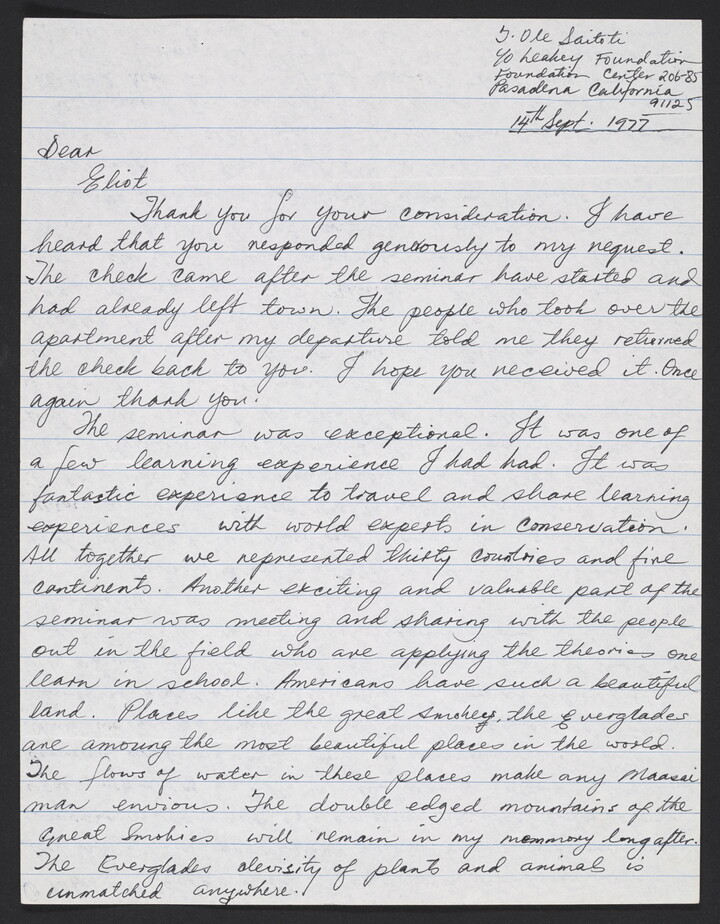 T. Ole Saitoti
c/o Leakey Foundation
Foundation Center 206-85
Pasadena California
91125
14th Sept. 1977
Dear
Eliot
Thank you for your consideration. I have
heard that you responded generously to my request.
The check came after the seminar have started and
had already left town. The people who took over the
apartment after my departure told me they returned
the check back to you. I hope you received it. Once
again thank you.
The seminar was exceptional. It was one of
a few learning experience I had had. It was
fantastic experience to travel and share learning
experiences with world experts in conservation.
All together we represented thirty countries and five
continents. Another exciting and valuable part of the
seminar was meeting and sharing with the people
out in the field who are applying the theories one
learn in school. Americans have such a beautiful
land. Places like the great Smokeys, the Everglades
are amoung the most beautiful places in the world.
The flows of water in these places make any Maasai
man envious. The double edged mountains of the
Great Smokies will remain in my memmory long after.
The Everglades divisity of plants and animals is
unmatched anywhere.